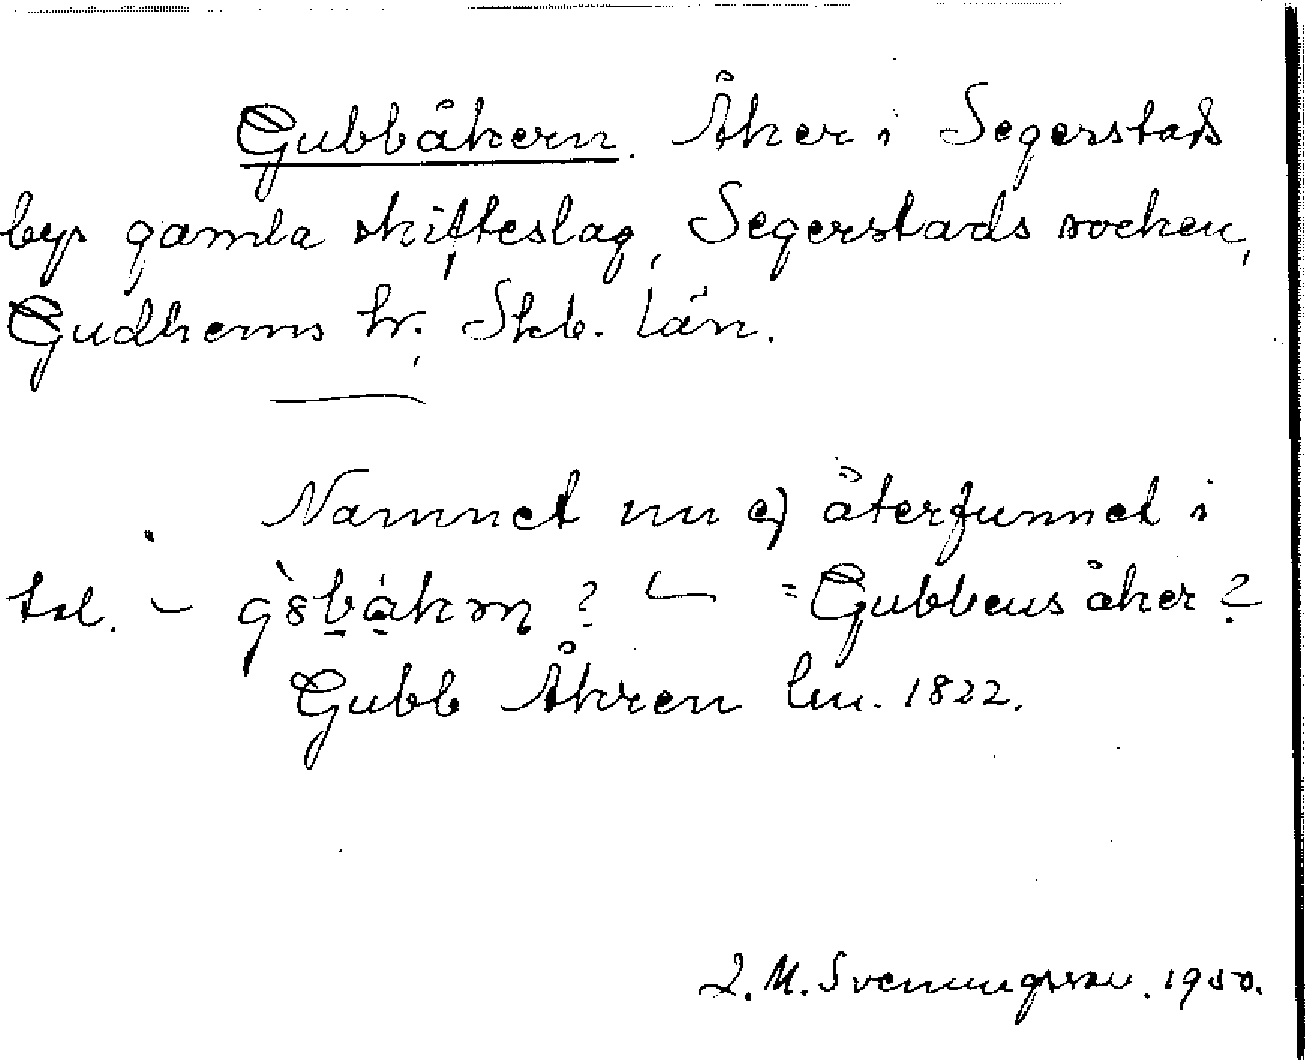 Gubbåkern. Åker i Segerstads
bys gamla skifteslag, Segerstads socken,
Gudhems hr. Skb. län.
Namnet nu ej återfunnet i
tal. – ? – = Gubbens åker?
Gubb Åkren lm. 1822.
L. M. Svenungsson. 1950.